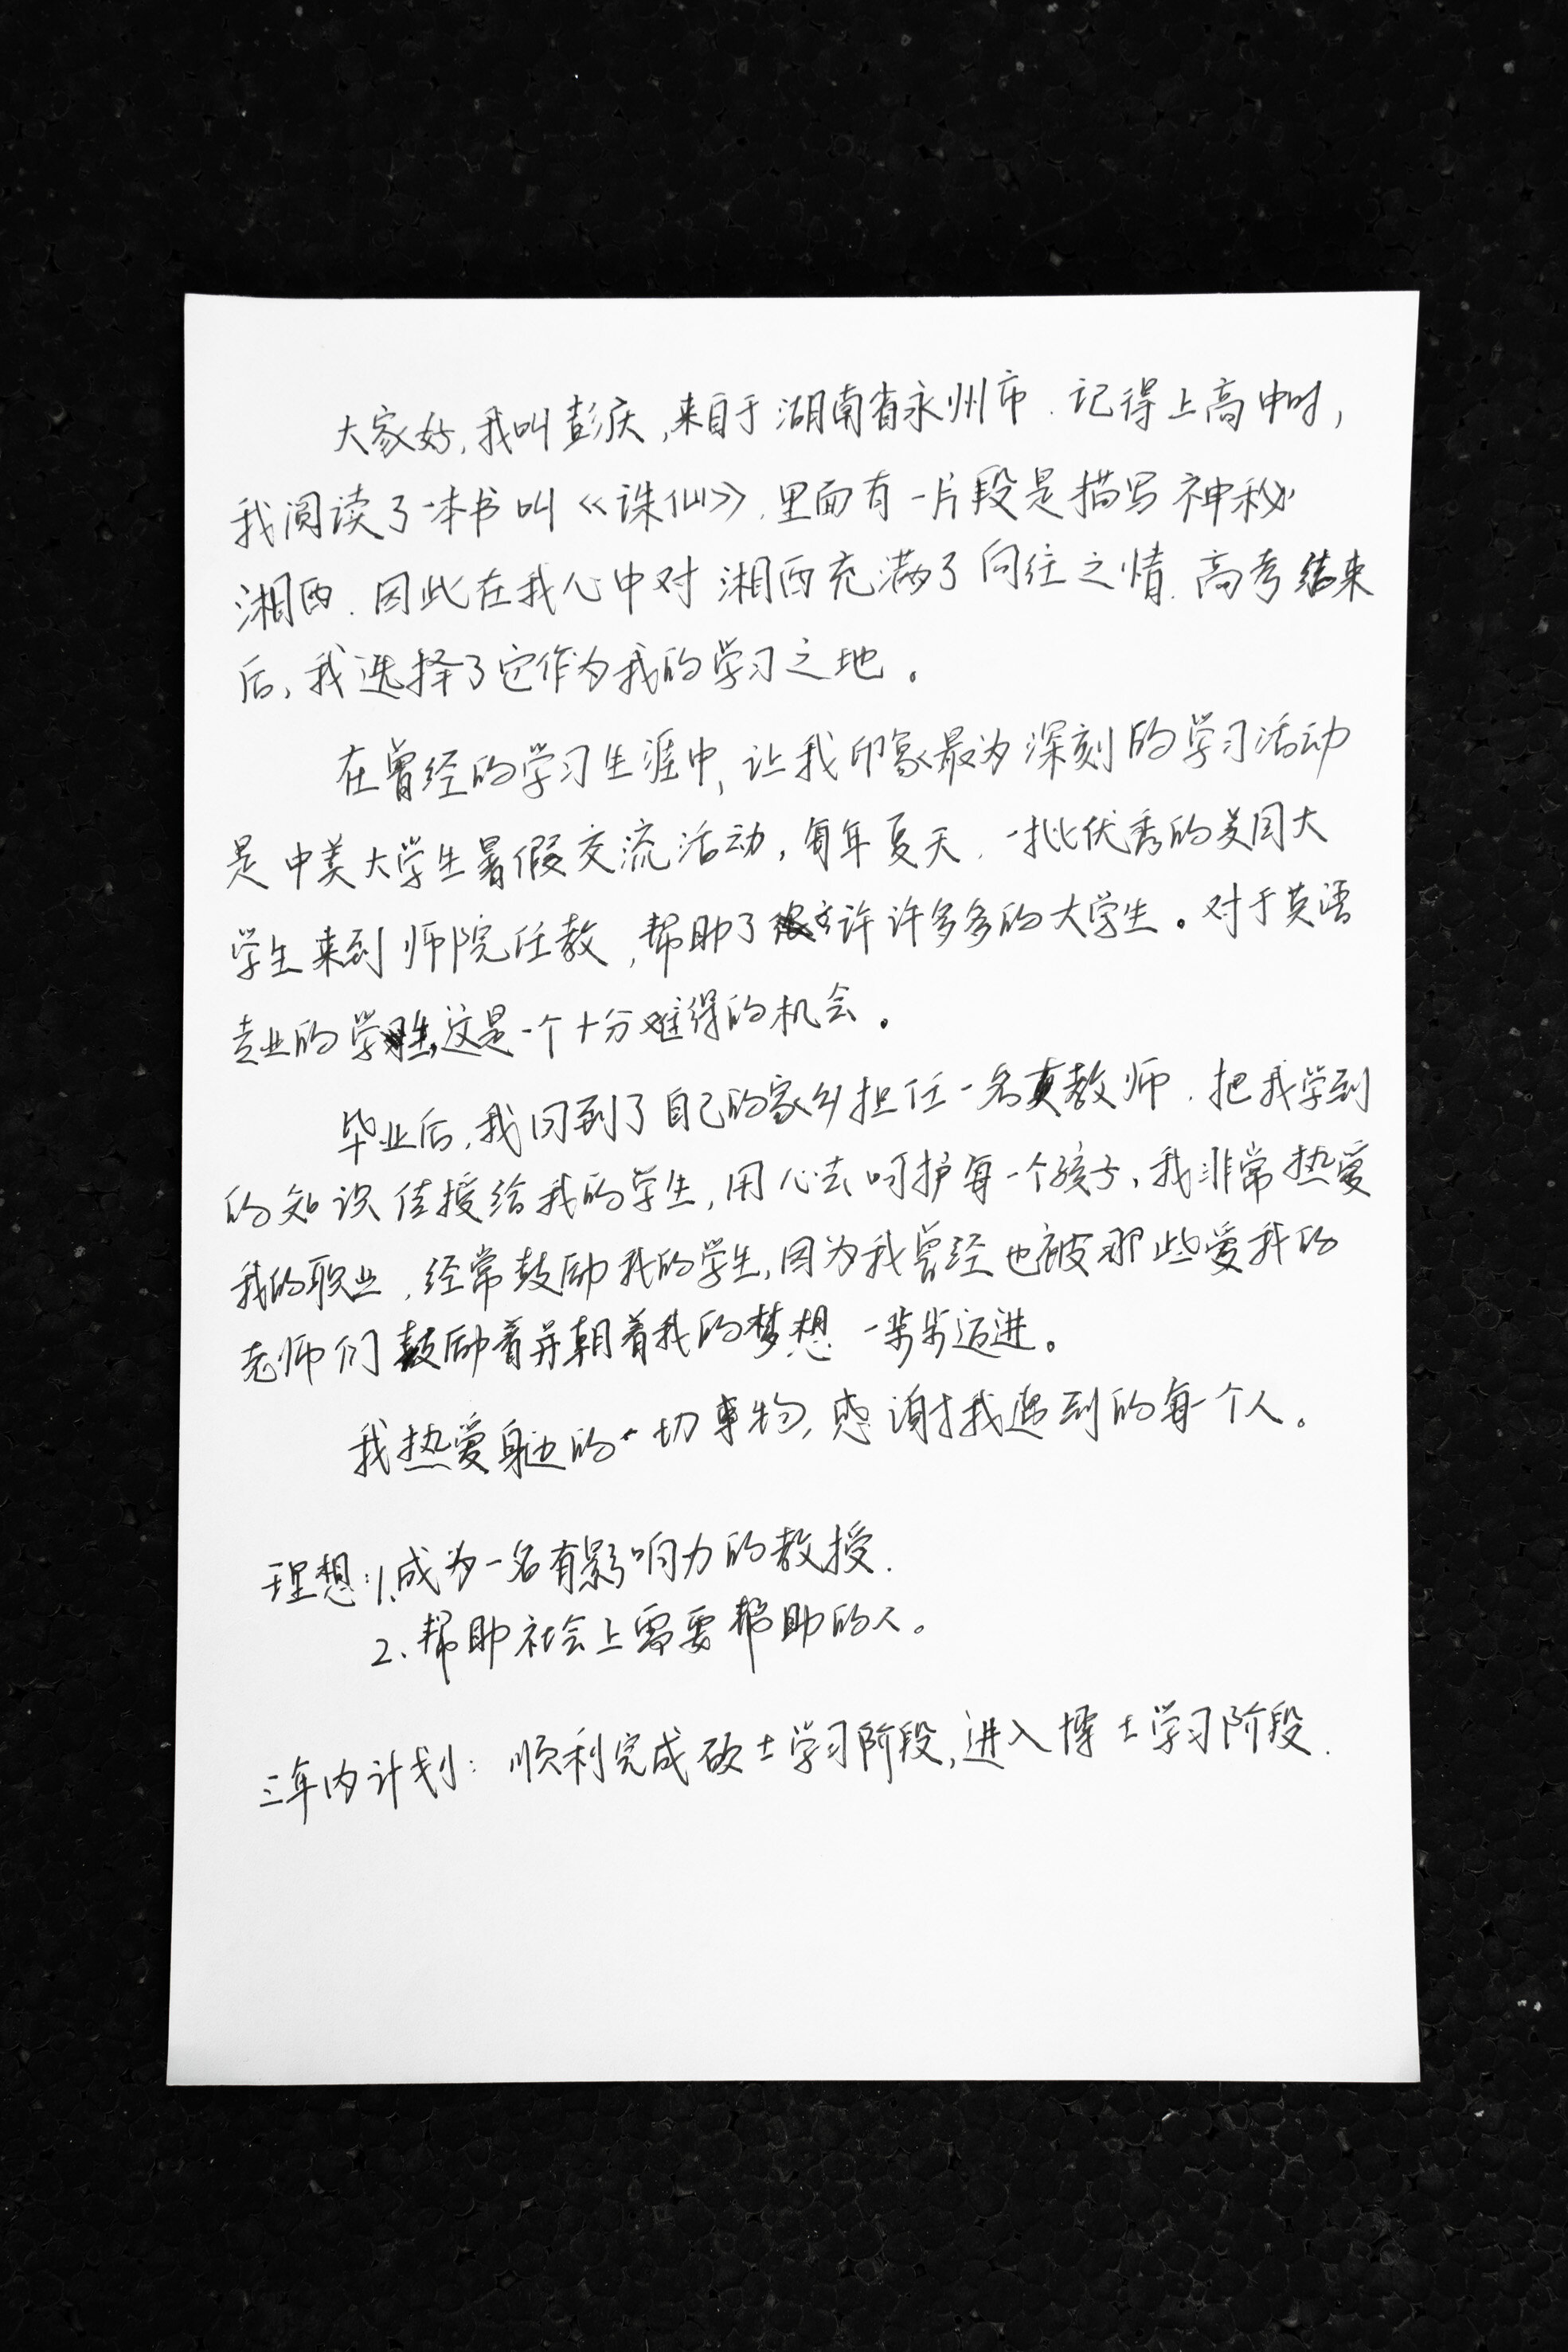 大家好,我叫彭庆,来自于湖南省永州市.记得上高中时,
我阅读了一本书叫《诛仙》.里面有一片段是描写神秘
湘西.因此在我心中对湘西充满了向往之情.高考结束
后,我选择了它作为我的学习之地。
在曾经的学习生涯中,让我印象最为深刻的学习活动
是中美大学生暑假交流活动,每年夏天.一批优秀的美国大
学生来到师院任教,帮助了许许多多的大学生。对于英语
专业的学生,这是一个十分难得的机会。
毕业后,我回到了自己的家乡担任一名教师.把我学到
的知识传授给我的学生,用心去呵护每一个孩子,我非常热爱
我的职业,经常鼓励我的学生,因为我曾经也被那些爱我的
老师们鼓励着并朝着我的梦想一步步迈进。
我热爱身边的一切事物,感谢我遇到的每一个人。
理想:1.成为一名有影响力的教授.
2、帮助社会上需要帮助的人。
三年内计划:顺利完成硕士学习阶段,进入博士学习阶段.